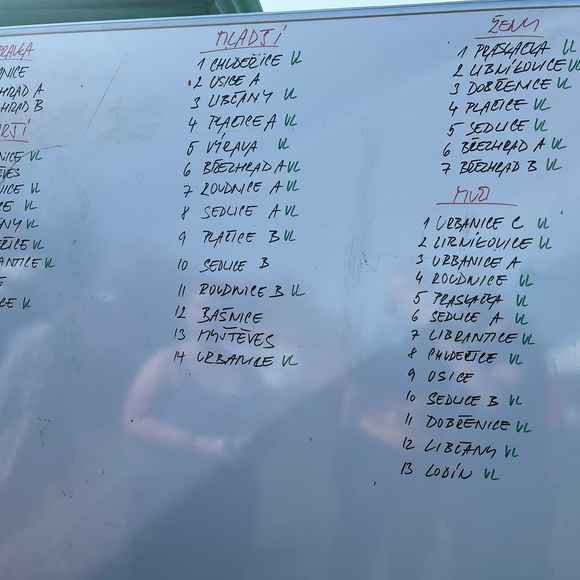 NICE
HRAD A
HRAD B
NICE VL
NICE VL
CE VL
NY VL
VL
ANTICE VL
CE VL
MLADŠÍ
1 CHUDEŘICE VL
2 OSICE A
3 LIBČANY VL
4 PLAČICE A VL
5 VÝRAVA VL
6 BŘEZHRAD A VL
7 ROUDNICE A VL
8 SEDLICE A VL
9 PLAČICE B VL
10 SEDLICE B
11 ROUDNICE B VL
12 BAŠNICE
13 MYŠTĚVES
14 URBANICE VL
ŽENY
1 PRASKAČKA VL
2 LIBNÍKOVICE VL
3 DOBŘENICE VL
4 PLAČICE VL
5 SEDLICE VL
6 BŘEZHRAD A VL
7 BŘEZHRAD B VL
MUŽI
1 URBANICE C VL
2 LIBNÍKOVICE VL
3 URBANICE A
4 ROUDNICE VL
5 PRASKAČKA VL
6 SEDLICE A VL
7 LIBRANTICE VL
8 CHUDEŘICE VL
9 OSICE
10 SEDLICE B VL
11 DOBŘENICE VL
12 LIBČANY VL
13 LODÍN VL